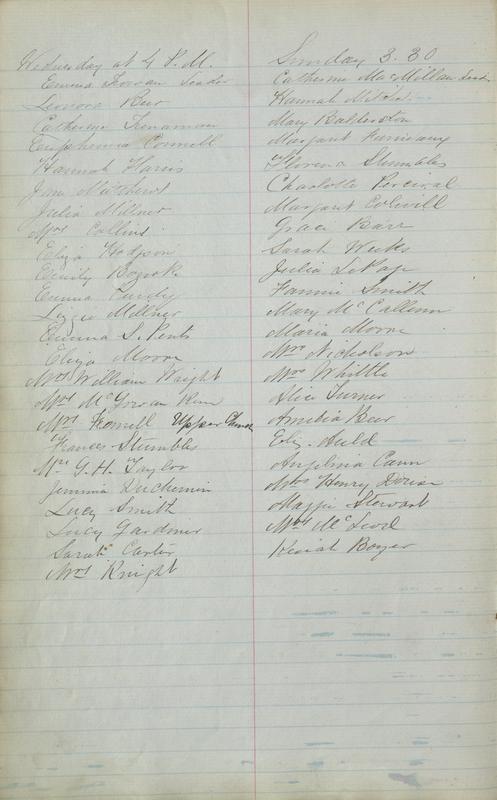 Wednesday at 4 P.M.
Emma Leader
Leonora Beer
Catherine
Euphemia Connell
Hannah Harris
Jane Mutthurst
Julia Millner
Mrs Collins
Eliza Hodgson
Emily
Emma Purdy
Lizzie Millner
Emma S.
Eliza Moore
Mrs William Wright
Mrs McGowan
Mrs Upper
Frances Stumbles
Mrs G. H. Taylor
Jemima Duchemin
Lucy Smith
Lucy Gardiner
Sarah Carter
Mrs Knight
Sunday 3.30
Catherine MacMillan
Hannah
Mary Balderston
Margaret
Florena Stumbles
Charlotte Percival
Margaret Colwill
Grace Barr
Sarah Weeks
Julia LePage
Fannie Smith
Mary McCallum
Maria Moore
Mrs Nicholson
Mrs Whittle
Alice Turner
Amelia Beer
Eliz. Auld
Angelina Cann
Mrs Henry
Maggie Stewart
Mrs McLeod
Keziah Boyer